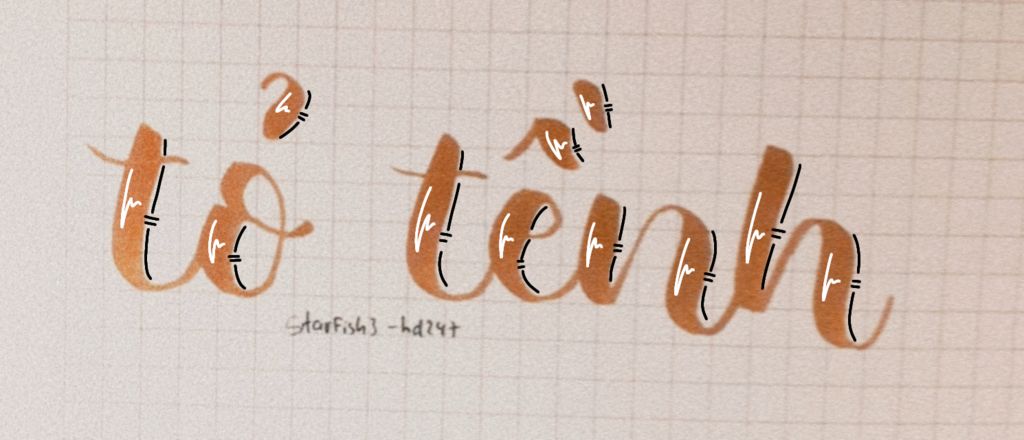 tỏ tềnh
StarFish3 -hd247